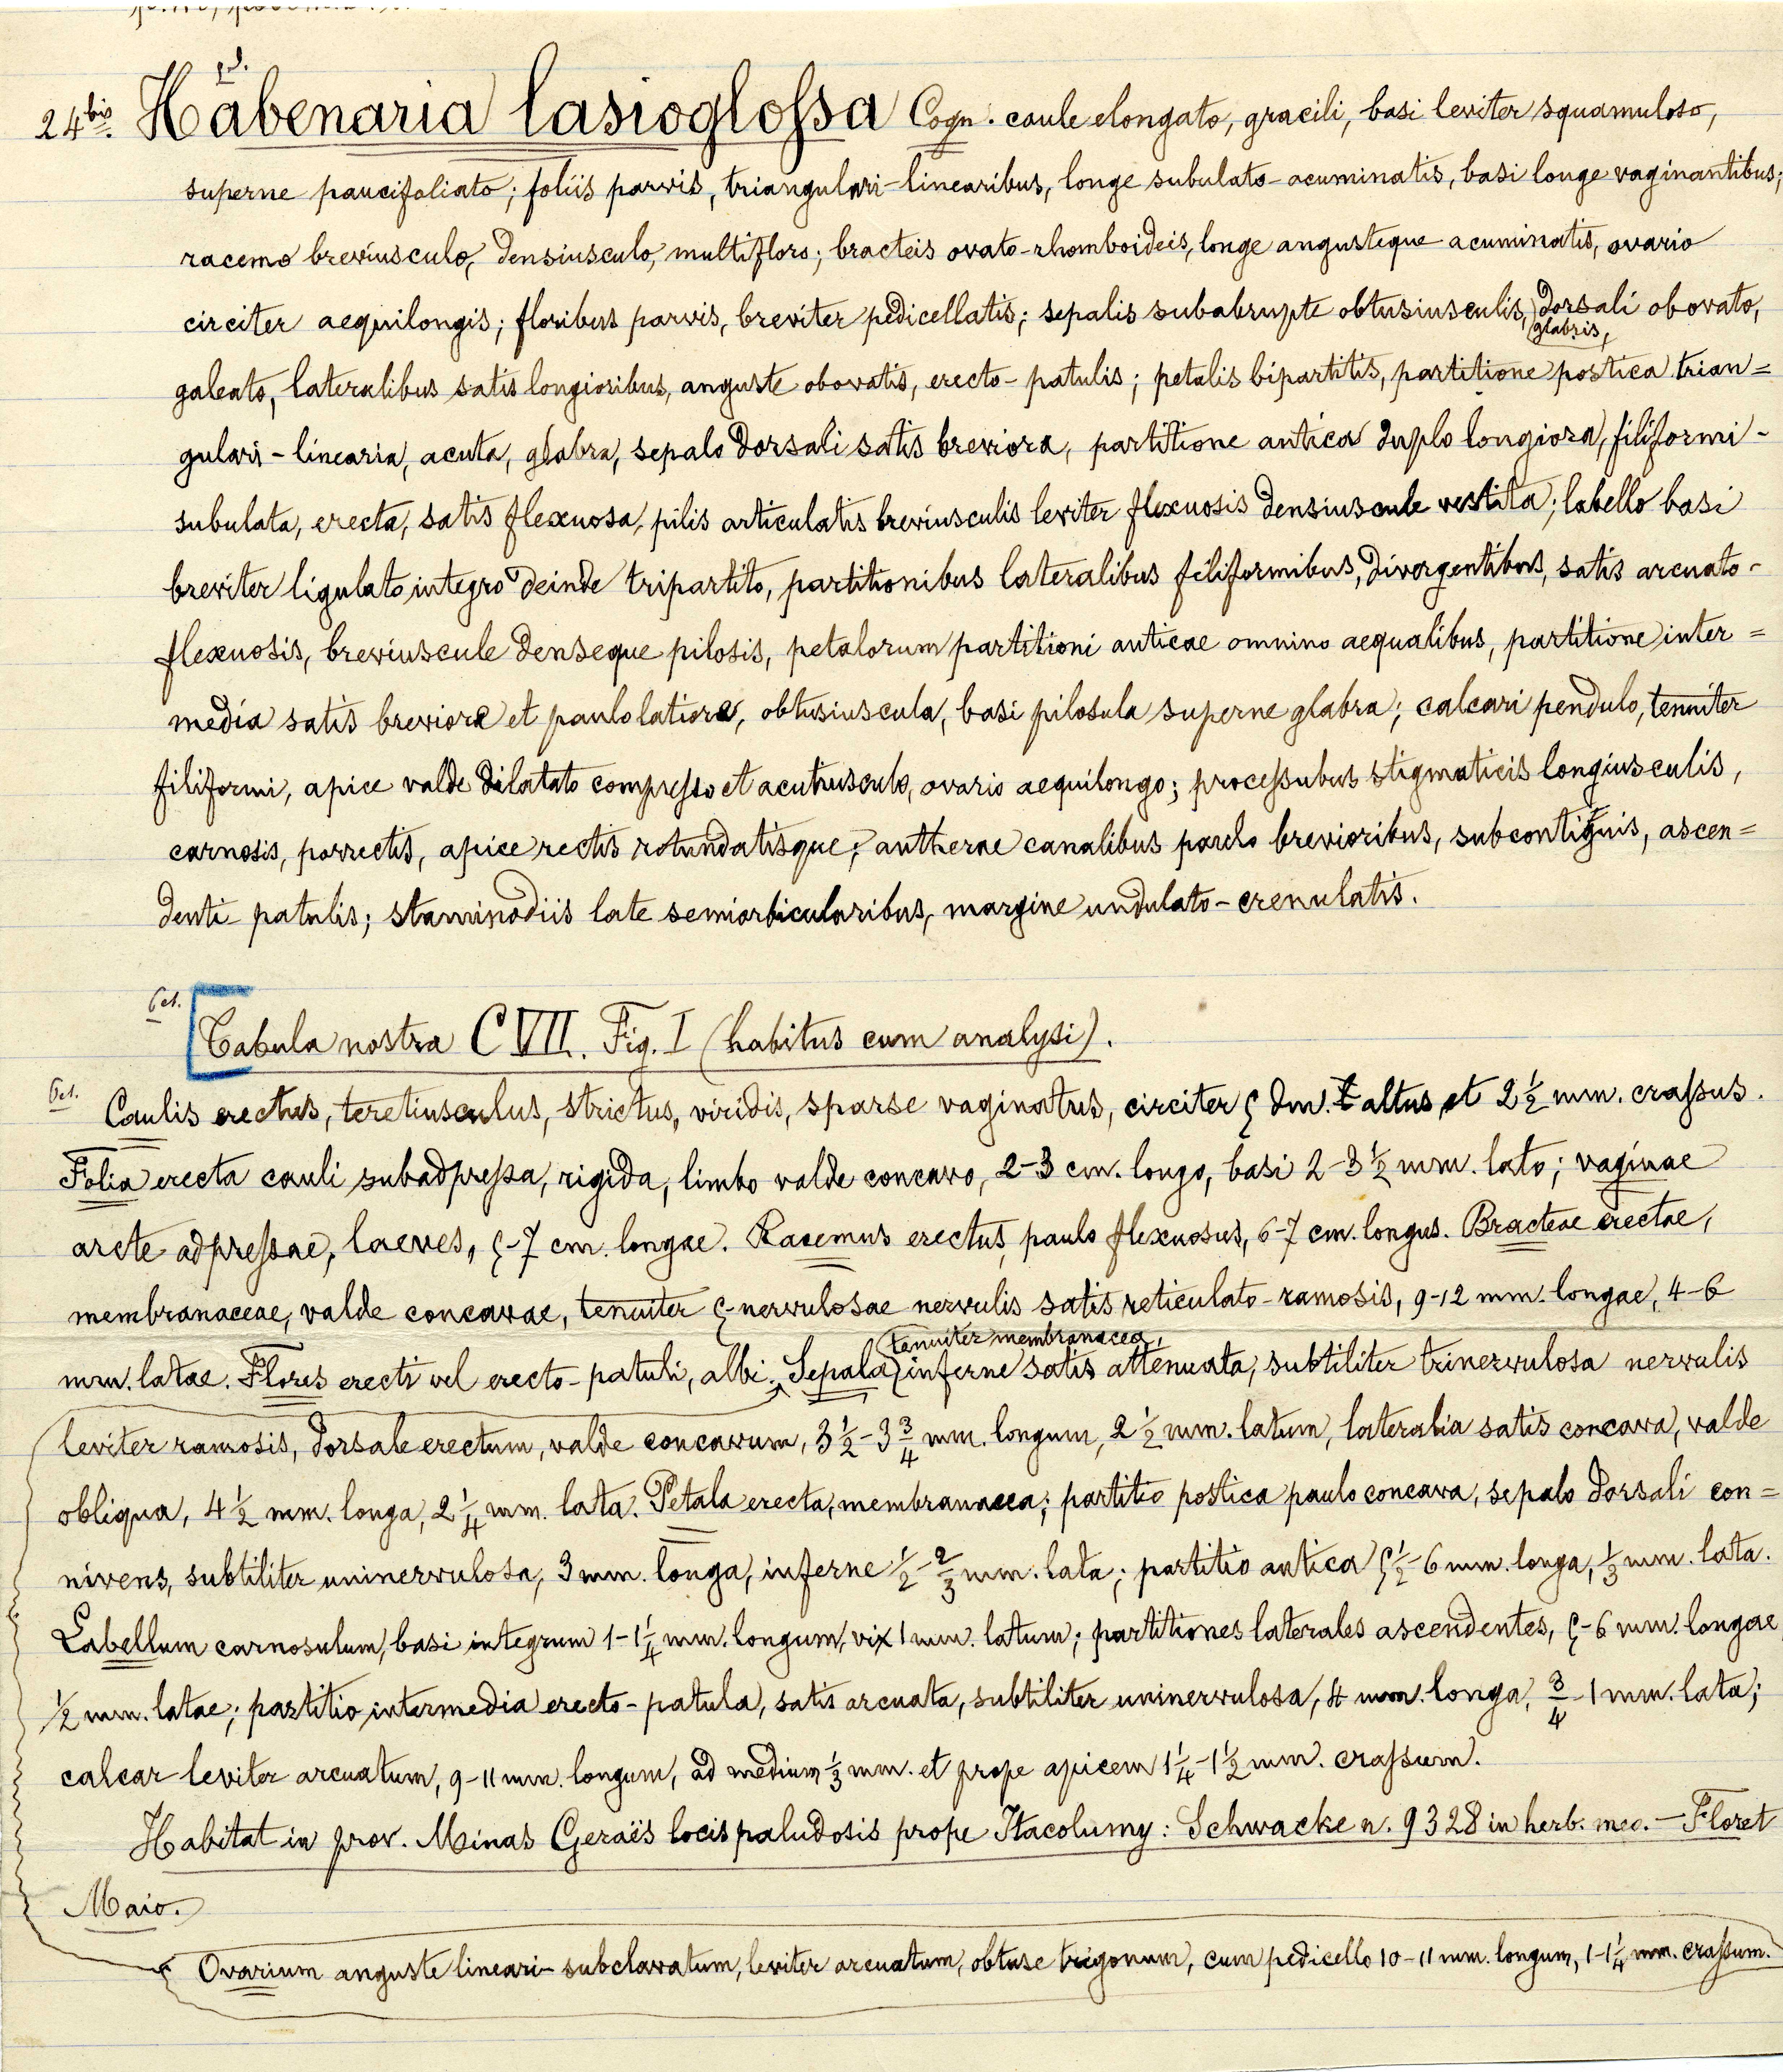 24bis. Habenaria lasioglossa Cogn. caule elongato, gracili, basi leviter squamuloso,
superne paucifoliato; foliis parvis, triangulari-linearibus, longe subulato-acuminatis, basi longe vaginantibus;
racemo breviusculo, densiusculo, multifloro; bracteis ovato-rhomboideis, longe angusteque acuminatis, ovario
circiter aequilongis; floribus parvis, breviter pedicellatis; sepalis subabrupte obtusiusculis, glabris, dorsali obovato,
galeato, lateralibus satis longioribus, anguste obovatis, erecto-patulis; petalis bipartitis, partitione postica trian=
gulari-linearia, acuta, glabra, sepalo dorsali satis breviora, partitione antica duplo longiora, filiformi-
subulata, erecta, satis flexuosa, pilis articulatis breviusculis leviter flexuosis densiuscule vestita; labello basi
breviter ligulato integro deinde tripartito, partitionibus lateralibus filiformibus, divergentibus, satis arcuato-
flexuosis, breviuscule denseque pilosis, petalorum partitioni anticae omnino aequalibus, partitione inter=
media satis breviora et paulo latiora, obtusiuscula, basi pilosula superne glabra; calcari pendulo, tenuiter
filiformi, apice valde dilatato compresso et acutiusculo, ovario aequilongo; processubus stigmaticis longiusculis,
carnosis, porrectis, apice rectis rotundatisque, antherae canalibus paulo brevioribus, subcontiguis, ascen=
denti patulis; staminodiis late semiorbicularibus, margine undulato-crenulatis.
Tabula nostra CVII. Fig. I (habitus cum analysi).
Caulis erectus, teretiusculus, strictus, viridis, sparse vaginatus, circiter 5 dm. altus et 2 1/2 mm. crassus.
Folia erecta cauli subadpressa, rigida, limbo valde concavo, 2-3 cm. longo, basi 2-3 1/2 mm. lato; vaginae
arcte adpressae, laeves, 5-7 cm. longae. Racemus erectus, paulo flexuosus, 6-7 cm. longus. Bracteae erectae,
membranaceae, valde concavae, tenuiter 5-nervulosae nervulis satis reticulato-ramosis, 9-12 mm. longae, 4-6
mm. latae. Flores erecti vel erecto-patuli, albi. Sepala tenuiter membranacea, inferne satis attenuata, subtiliter trinervulosa nervulis
leviter ramosis, dorsale erectum, valde concavum, 3 1/2-3 3/4 mm. longum, 2 1/2 mm. latum, lateralia satis concava, valde
obliqua, 4 1/2 mm. longa, 2 1/4 mm. lata. Petala erecta, membranacea; partitio postica paulo concava, sepalo dorsali con=
nivens, subtiliter uninervulosa, 3 mm. longa, inferne 1/2-2/3 mm. lata; partitio antica 5 1/2-6 mm. longa, 1/3 mm. lata.
Labellum carnosulum, basi integrum 1-1 1/4 mm. longum, vix 1 mm. latum; partitiones laterales ascendentes, 5-6 mm. longae
1/2 mm. latae; partitio intermedia erecto-patula, satis arcuata, subtiliter uninervulosa, 4 mm. longa, 3/4-1 mm. lata;
calcar leviter arcuatum, 9-11 mm. longum, ad medium 1/3 mm. et prope apicem 1 1/4-1 1/2 mm. crassum.
Habitat in prov. Minas Geraës locis paludosis prope Itacolumy: Schwacke n. 9328 in herb. meo. — Floret
Maio.
Ovarium anguste lineari-subclavatum, leviter arcuatum, obtuse trigonum, cum pedicello 10-11 mm. longum, 1-1 1/4 mm. crassum.